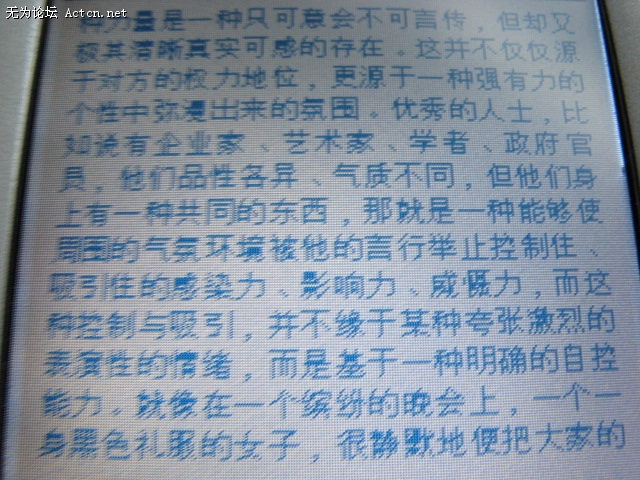 无为论坛 Actcn.net
种力量是一种只可意会不可言传，但却又
极其清晰真实可感的存在。这并不仅仅源
于对方的权力地位，更源于一种强有力的
个性中弥漫出来的氛围。优秀的人士，比
如说有企业家、艺术家、学者、政府官
员，他们品性各异、气质不同，但他们身
上有一种共同的东西，那就是一种能够使
周围的气氛环境被他的言行举止控制住、
吸引住的感染力、影响力、威慑力，而这
种控制与吸引，并不缘于某种夸张激烈的
表演性的情绪，而是基于一种明确的自控
能力。就像在一个缤纷的晚会上，一个一
身黑色礼服的女子，很静默地便把大家的